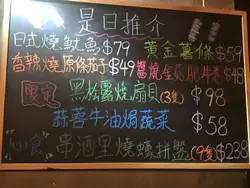 是日推介
日式燒魷魚$79 黃金薯條$59
香辣燒原條茄子$49 醬燒金菇肥牛卷$48
限定 黑松露燒扇貝(3隻) $98
蒜蓉牛油焗蔬菜 $58
串酒里燒蠔拼盤(9隻)$238